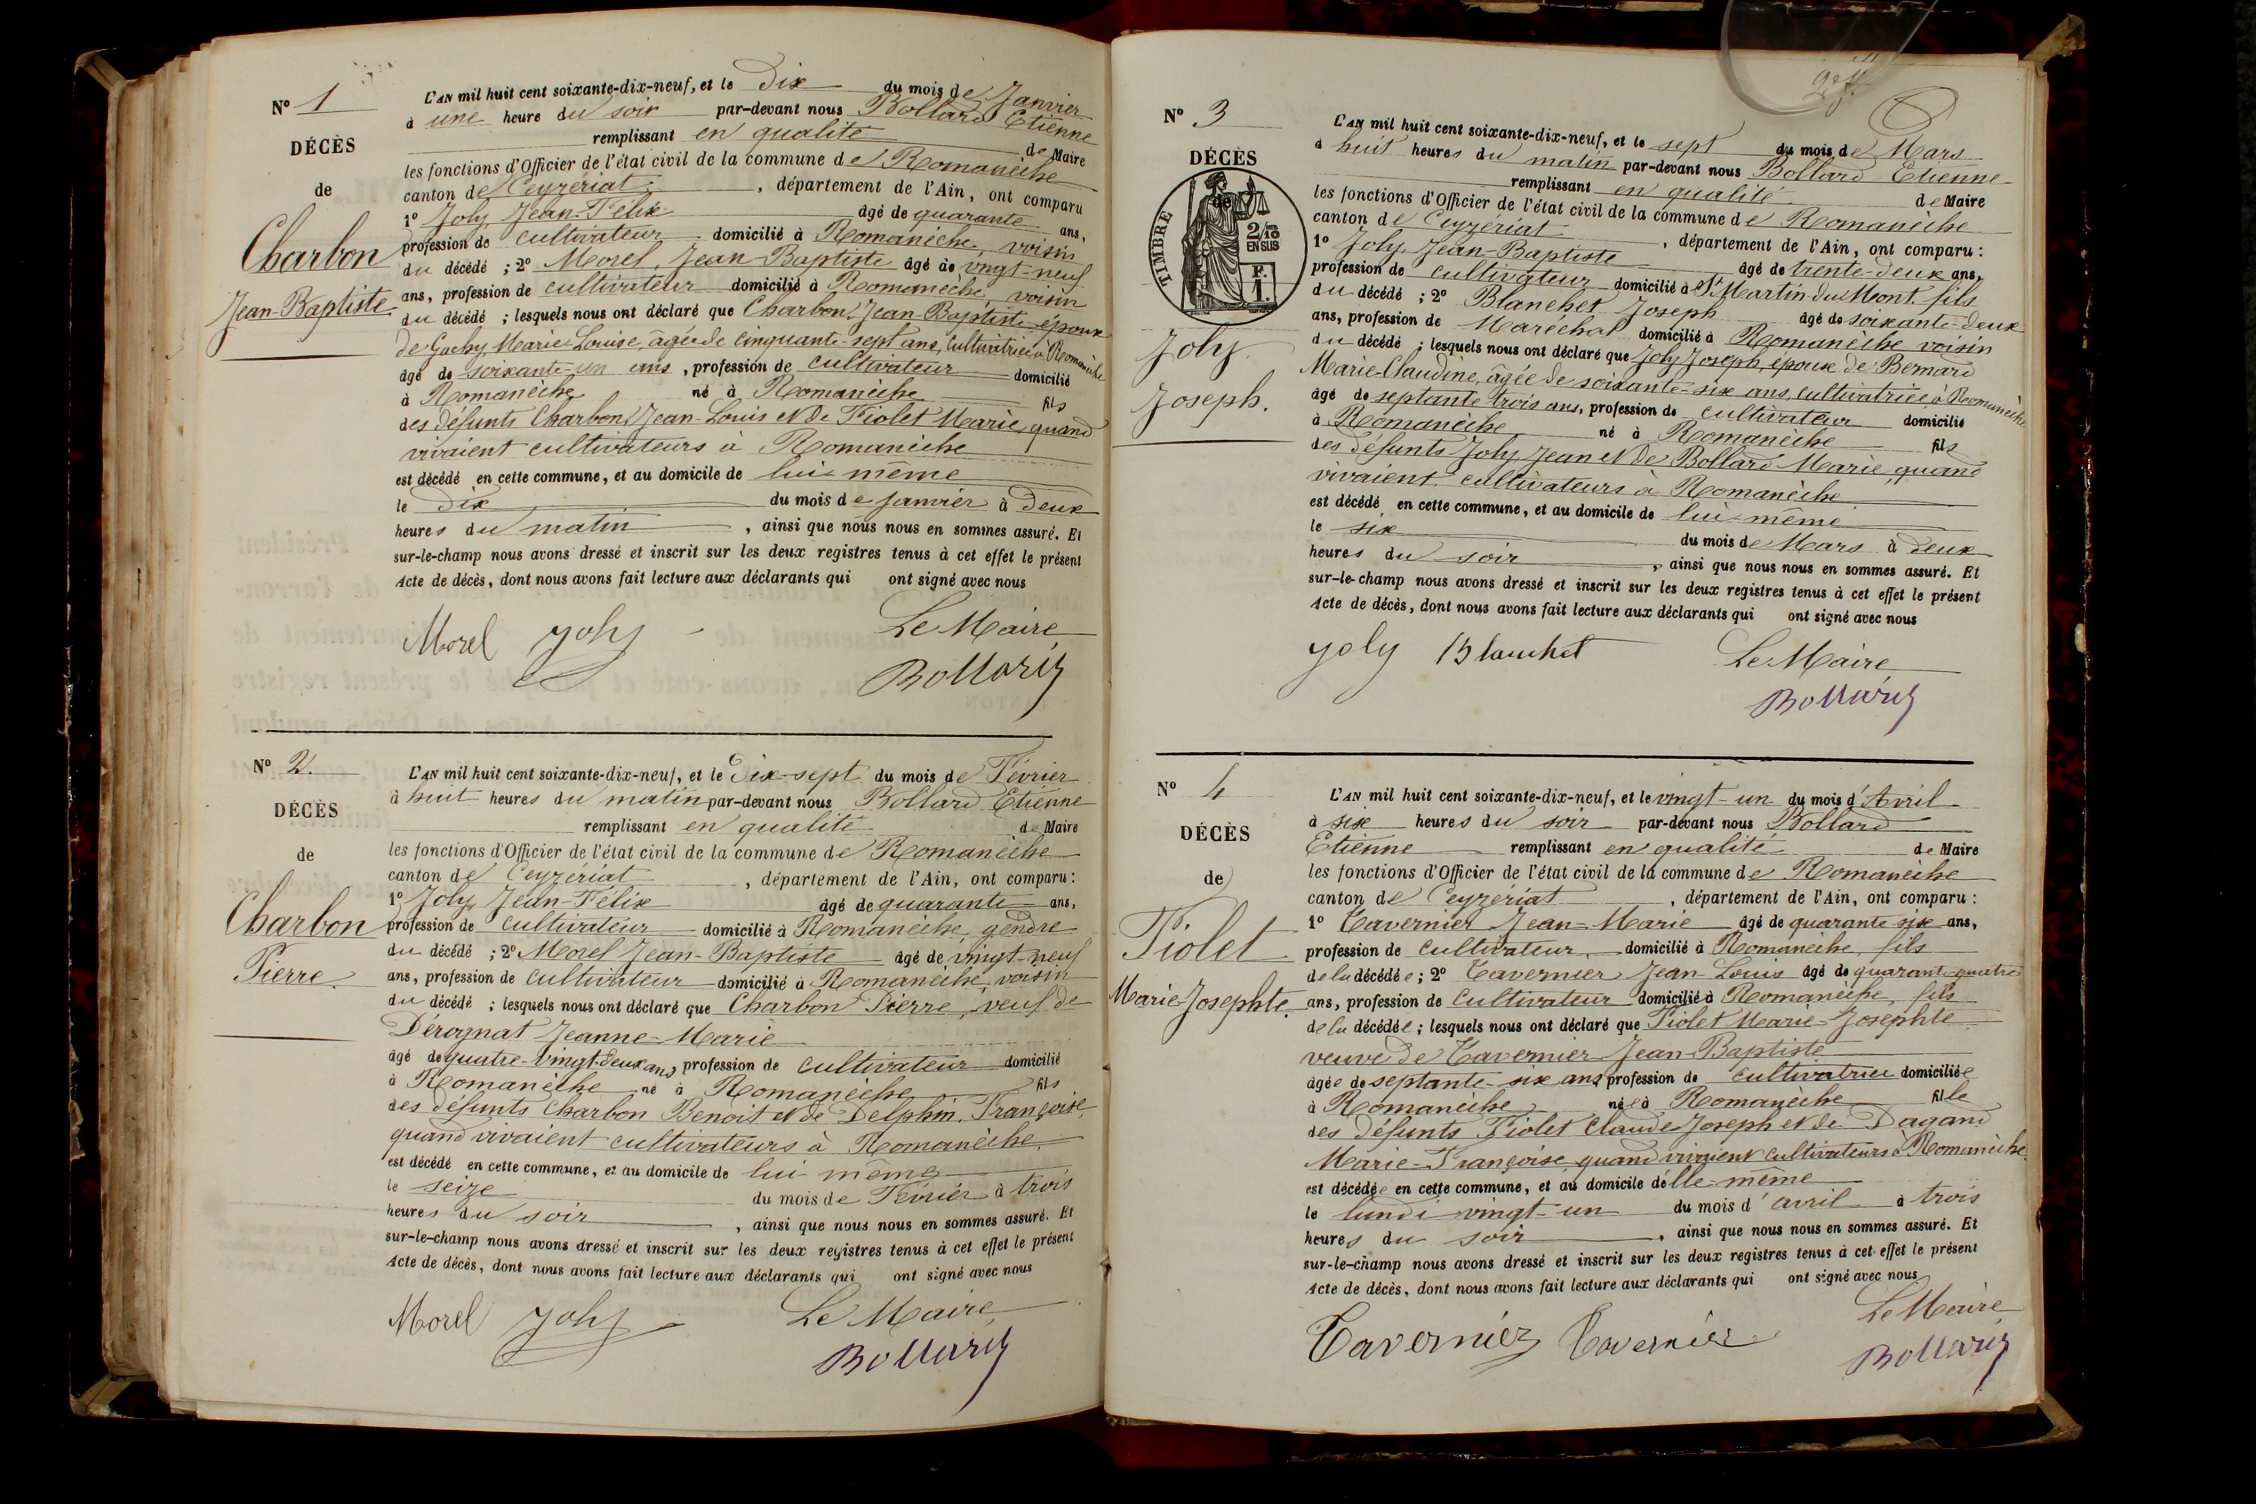 N° 1
DÉCÈS
de
Charbon
Jean-Baptiste.
L'AN mil huit cent soixante-dix-neuf, et le Dix du mois de Janvier
à une heure du soir par-devant nous Bollard Etienne
remplissant en qualité de Maire
les fonctions d'Officier de l'état civil de la commune de Romanèche
canton de Ceyzériat, département de l'Ain, ont comparu
1° Joly Jean-Félix âgé de quarante ans,
profession de cultivateur domicilié à Romanèche, voisin
du décédé ; 2° Morel Jean Baptiste âgé de vingt-neuf
ans, profession de cultivateur domicilié à Romanèche, voisin
du décédé ; lesquels nous ont déclaré que Charbon Jean-Baptiste époux
de Marie Louise, âgée de cinquante-sept ans, cultivatrice à Romanèche
âgé de soixante-un ans, profession de cultivateur domicilié
à Romanèche né à Romanèche fils
des défunts Charbon Jean-Louis et de Fiolet Marie, quand
vivaient cultivateurs à Romanèche
est décédé en cette commune, et au domicile de lui-même
le Dix du mois de Janvier à Deux
heures du matin, ainsi que nous nous en sommes assuré. Et
sur-le-champ nous avons dressé et inscrit sur les deux registres tenus à cet effet le présent
Acte de décès, dont nous avons fait lecture aux déclarants qui ont signé avec nous
Morel Joly Le Maire
Bollard
N° 2.
DÉCÈS
de
Charbon
Pierre.
L'AN mil huit cent soixante-dix-neuf, et le Dix-sept du mois de Février
à huit heures du matin par-devant nous Bollard Etienne
remplissant en qualité de Maire
les fonctions d'Officier de l'état civil de la commune de Romanèche
canton de Ceyzériat, département de l'Ain, ont comparu :
1° Joly Jean-Félix âgé de quarante ans,
profession de cultivateur domicilié à Romanèche, gendre
du décédé ; 2° Morel Jean-Baptiste âgé de vingt-neuf
ans, profession de cultivateur domicilié à Romanèche, voisin
du décédé ; lesquels nous ont déclaré que Charbon Pierre, veuf de
Dérognat Jeanne-Marie
âgé de quatre-vingt-deux ans, profession de cultivateur domicilié
à Romanèche né à Romanèche fils
des défunts Charbon Benoit et de Delphin Françoise,
quand vivaient cultivateurs à Romanèche.
est décédé en cette commune, et au domicile de lui même
le seize du mois de Février à trois
heures du soir, ainsi que nous nous en sommes assuré. Et
sur-le-champ nous avons dressé et inscrit sur les deux registres tenus à cet effet le présent
Acte de décès, dont nous avons fait lecture aux déclarants qui ont signé avec nous
Morel Joly Le Maire
Bollard
N° 3
DÉCÈS
de
TIMBRE
2/10
EN SUS
F.
1.
Joly
Joseph.
L'AN mil huit cent soixante-dix-neuf, et le sept du mois de Mars
à huit heures du matin par-devant nous Bollard Etienne
remplissant en qualité de Maire
les fonctions d'Officier de l'état civil de la commune de Romanèche
canton de Ceyzériat, département de l'Ain, ont comparu :
1° Joly Jean-Baptiste âgé de trente-deux ans,
profession de cultivateur domicilié à St Martin du Mont fils
du décédé ; 2° Blanchet Joseph âgé de soixante-deux
ans, profession de Maréchal domicilié à Romanèche voisin
du décédé ; lesquels nous ont déclaré que Joly Joseph, époux de Bernard
Marie-Claudine, âgée de soixante-six ans, cultivatrice à Romanèche
âgé de septante trois ans, profession de cultivateur domicilié
à Romanèche né à Romanèche fils
des défunts Joly Jean et de Bollard Marie, quand
vivaient cultivateurs à Romanèche
est décédé en cette commune, et au domicile de lui-même
le six du mois de Mars à deux
heures du soir, ainsi que nous nous en sommes assuré. Et
sur-le-champ nous avons dressé et inscrit sur les deux registres tenus à cet effet le présent
Acte de décès, dont nous avons fait lecture aux déclarants qui ont signé avec nous
Joly Blanchet Le Maire
Bollard
N° 4
DÉCÈS
de
Fiolet
Marie-Josephte.
L'AN mil huit cent soixante-dix-neuf, et le vingt-un du mois d'Avril
à six heures du soir par-devant nous Bollard
Etienne remplissant en qualité de Maire
les fonctions d'Officier de l'état civil de la commune de Romanèche
canton de Ceyzériat, département de l'Ain, ont comparu :
1° Tavernier Jean-Marie âgé de quarante six ans,
profession de cultivateur domicilié à Romanèche, fils
de la décédée ; 2° Tavernier Jean-Louis âgé de quarante-quatre
ans, profession de cultivateur domicilié à Romanèche, fils
de la décédée ; lesquels nous ont déclaré que Fiolet Marie-Josephte
veuve de Tavernier Jean-Baptiste
âgée de septante-six ans, profession de cultivatrice domiciliée
à Romanèche née à Romanèche fille
des défunts Fiolet Claude Joseph et de Dagand
Marie-Françoise quand vivaient cultivateurs à Romanèche
est décédée en cette commune, et au domicile d'elle-même
le lundi vingt-un du mois d'avril à trois
heures du soir, ainsi que nous nous en sommes assuré. Et
sur-le-champ nous avons dressé et inscrit sur les deux registres tenus à cet effet le présent
Acte de décès, dont nous avons fait lecture aux déclarants qui ont signé avec nous
Tavernier Tavernier Le Maire
Bollard